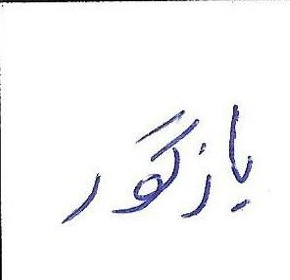 یازگور